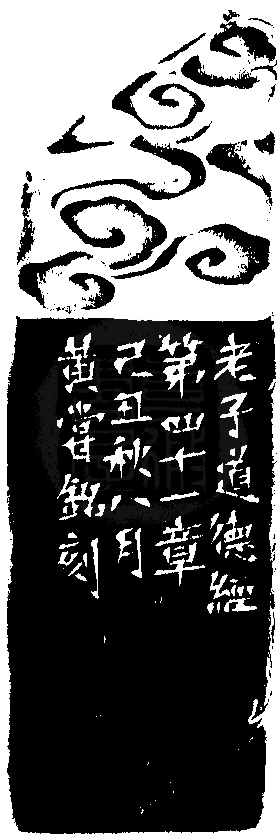 老子道德經
第四十一章
己丑秋八月
黃嘗銘刻